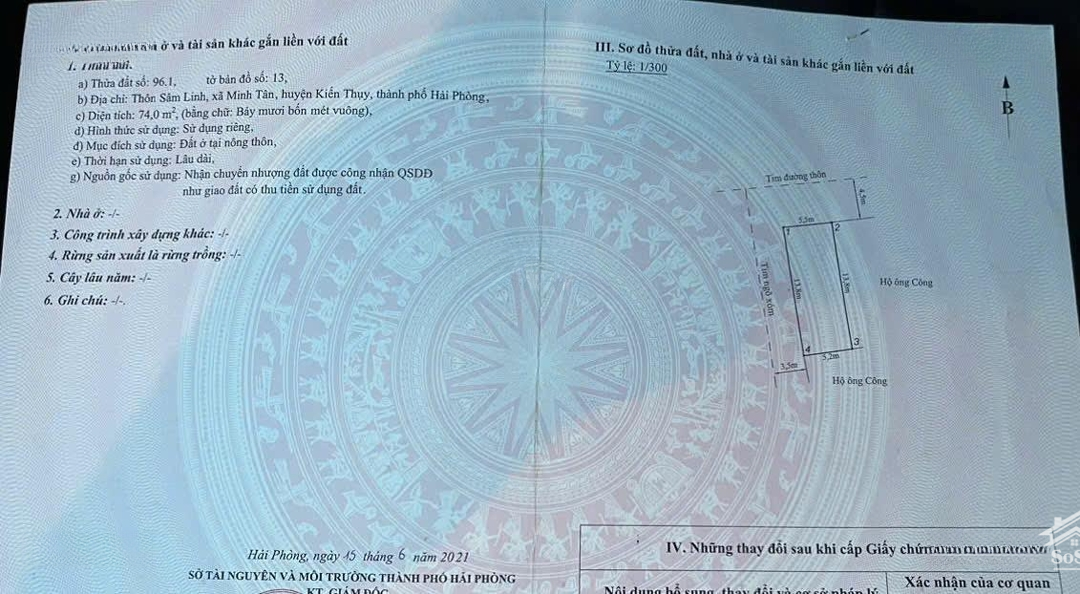 ở và tài sản khác gắn liền với đất
1. Thửa đất:
a) Thửa đất số: 96.1, tờ bản đồ số: 13,
b) Địa chỉ: Thôn Sâm Linh, xã Minh Tân, huyện Kiến Thụy, thành phố Hải Phòng,
c) Diện tích: 74,0 m², (bằng chữ: Bảy mươi bốn mét vuông),
d) Hình thức sử dụng: Sử dụng riêng,
đ) Mục đích sử dụng: Đất ở tại nông thôn,
e) Thời hạn sử dụng: Lâu dài,
g) Nguồn gốc sử dụng: Nhận chuyển nhượng đất được công nhận QSDĐ
như giao đất có thu tiền sử dụng đất.
2. Nhà ở: -/-
3. Công trình xây dựng khác: -/-
4. Rừng sản xuất là rừng trồng: -/-
5. Cây lâu năm: -/-
6. Ghi chú: -/-.
Hải Phòng, ngày 15 tháng 6 năm 2021
SỞ TÀI NGUYÊN VÀ MÔI TRƯỜNG THÀNH PHỐ HẢI PHÒNG
KT. GIÁM ĐỐC
III. Sơ đồ thửa đất, nhà ở và tài sản khác gắn liền với đất
Tỷ lệ: 1/300
B
Tim đường thôn
4,5m
5,5m
1
2
Tim ngõ xóm
13,8m
13,8m
Hộ ông Công
4
3
5,2m
3,5m
Hộ ông Công
IV. Những thay đổi sau khi cấp Giấy
Nội dung bổ sung, thay đổi và cơ sở pháp lý
Xác nhận của cơ quan
SoS